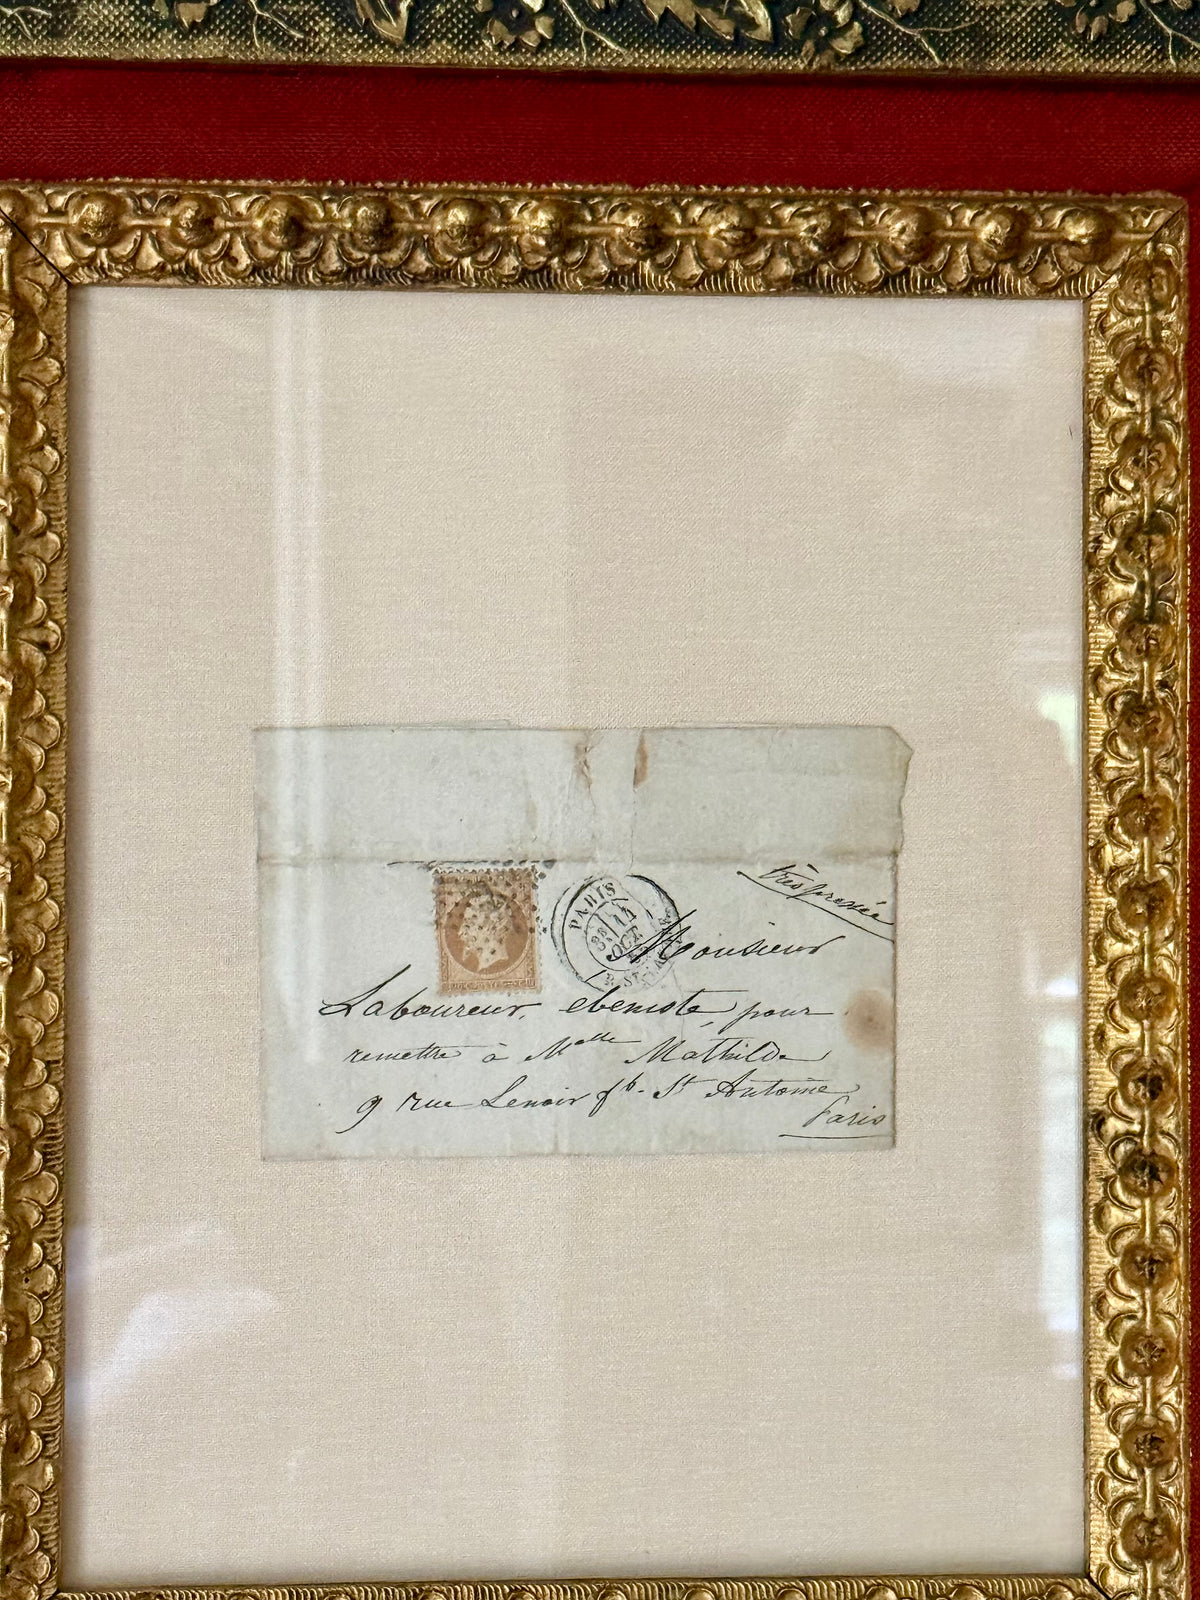 très pressée
PARIS
14
OCT
Monsieur
Laboureur, ebeniste, pour
remettre à Melle Mathilde
9 rue Lenoir fb. St Antoine
Paris